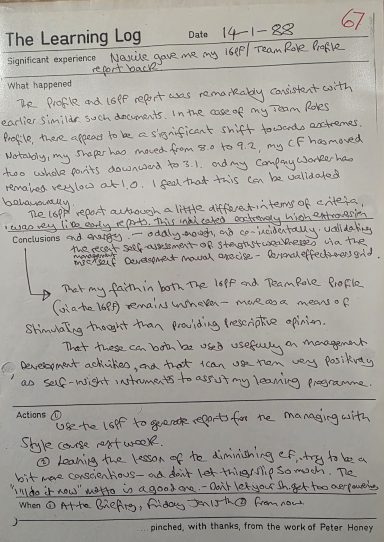 67
The Learning Log Date 14-1-88
Significant experience gave me my 16PF/Team Role Profile
report back
What happened
The Profile and 16PF report was remarkably consistent with
earlier similar such documents. In the case of my Team Roles
Profile, there appears to be a significant shift towards extremes.
Notably, my shaper has moved from 8.0 to 9.2, my CF has moved
two whole points downward to 3.1. and my Company Worker has
remained very low at 1.0. I feel that this can be validated
behaviourally.
The 16PF report although a little different in terms of criteria,
was very like early reports. This indicated extremely high extraversion
Conclusions and energy, — oddly enough, and co-incidentally, validating
the recent self-assessment of strengths/weaknesses via the
management self Development manual exercise - Personal effectiveness grid.
That my faith in both the 16PF and Team Role Profile
(via the 16PF) remains unshaken - more as a means of
stimulating thought than providing prescriptive opinion.
That these can both be used usefully on management
Development activities, and that I can use them very positively
as self-insight instruments to assist my learning programme.
Actions ①
Use the 16PF to generate reports for the Managing with
Style course next week.
② Learning the lesson of the diminishing CF, try to be a
bit more conscientious - and don't let things slip so much. The
"I'll do it now" motto is a good one. - Don't let your Sh. get too overpowering
When ① At the Briefing, Friday Jan 15th ② From now
...pinched, with thanks, from the work of Peter Honey